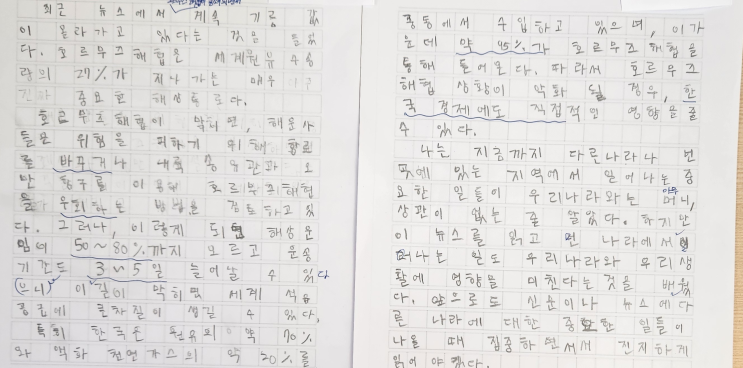 최근 뉴스에서 계속 기름 값
이 올라가고 있다는 것을 들었
다. 호르무즈 해협은 세계원유 수송
량의 27%가 지나 가는 매우
중요한 해상통로다.
호르무즈 해협이 막히면, 해운사
들은 위험을 피하기 위해 항로
를 바꾸거나 대륙 송유관과 오
만 항구를 이용해 호르무즈 해협
을 우회하는 방법을 검토하고 있
다. 그러나, 이렇게 되면 해상운
임이 50~80%까지 오르고 운송
기간도 3~5일 늘어날 수 있다
(으니) 이 길이 막히면 세계 석유
공급에 문제점이 생길 수 있다.
특히 한국은 원유의 약 70%
와 액화 천연가스의 약 20%를
중동에서 수입하고 있으며, 이 가
운데 약 95%가 호르무즈 해협을
통해 들어온다. 따라서 호르무즈
해협 상황이 악화 될 경우, 한
국 경제에도 직접적인 영향을 줄
수 있다.
나는 지금까지 다른나라나 먼
곳에 있는 지역에서 일어나는 중
요한 일들이 우리나라와는 아무
상관이 없는 줄 알았다. 하지만
이 뉴스를 읽고 먼 나라에서 일
어나는 일도 우리나라와 우리 생
활에 영향을 미친다는 것을 배웠
다. 앞으로도 신문이나 뉴스에 다
른 나라에 대한 중요한 일들이
나올 때 집중하면서서 진지하게
읽어야겠다.